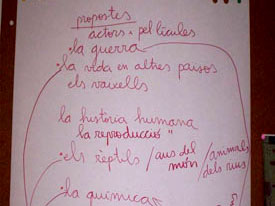 propostes
actors • pel·lícules
• la guerra
• la vida en altres països
els vaixells
la història humana
la reproducció "
• els rèptils / aus del món / animals dels rius
• la química